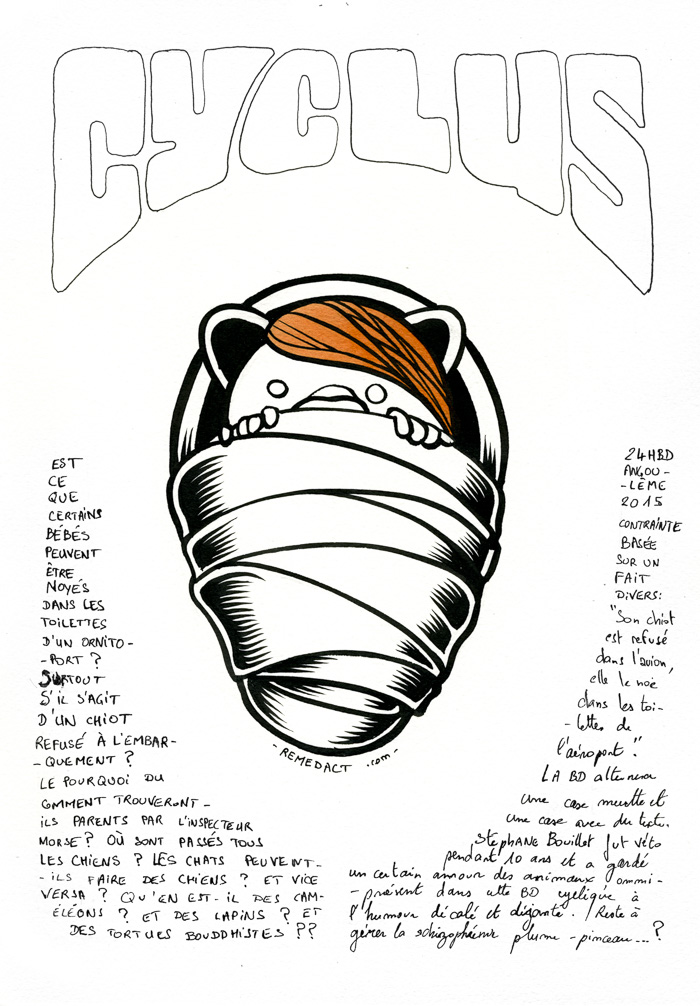 CYCLUS
EST
CE
QUE
CERTAINS
BÉBÉS
PEUVENT
ÊTRE
NOYÉS
DANS LES
TOILETTES
D'UN ORNITO-
-PORT ?
SURTOUT
S'IL S'AGIT
D'UN CHIOT
REFUSÉ À L'EMBAR-
-QUEMENT ?
LE POURQUOI OU
COMMENT TROUVERONT-
ILS PARENTS PAR L'INSPECTEUR
MORSE ? OÙ SONT PASSÉS TOUS
LES CHIENS ? LES CHATS PEUVENT-
-ILS FAIRE DES CHIENS ? ET VICE
VERSA ? QU'EN EST-IL DES CAM-
ÉLÉONS ? ET DES LAPINS ? ET
DES TORTUES BOUDDHISTES ??
-REMEDACT .com-
24HBD
ANGOU-
-LÊME
2015
CONTRAINTE
BASÉE
SUR UN
FAIT
DIVERS:
"Son chiot
est refusé
dans l'avion,
elle le noie
dans les toi-
-lettes de
l'aéroport."
LA BD alternera
une case muette et
une case avec du texte.
Stéphane Bouillet fut véto
pendant 10 ans et a gardé
un certain amour des animaux omni-
-présent dans cette BD cyclique à
l'humour décalé et déganté. Reste à
gérer la schizophrénie plume-pinceau...?